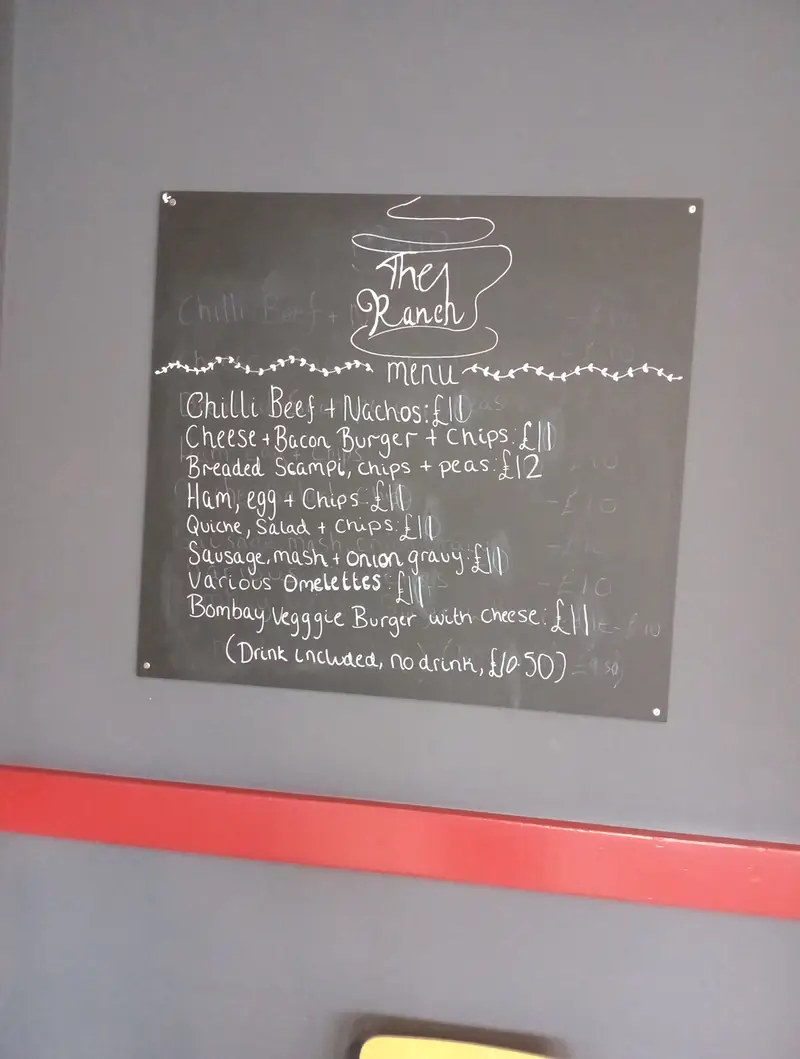 The
Ranch
menu
Chilli Beef + Nachos: £11
Cheese + Bacon Burger + Chips: £11
Breaded Scampi, chips + peas: £12
Ham, egg + Chips: £11
Quiche, Salad + Chips: £11
Sausage, mash + onion gravy: £11
Various Omelettes: £11
Bombay Vegggie Burger with cheese: £11
(Drink included, no drink, £10.50)